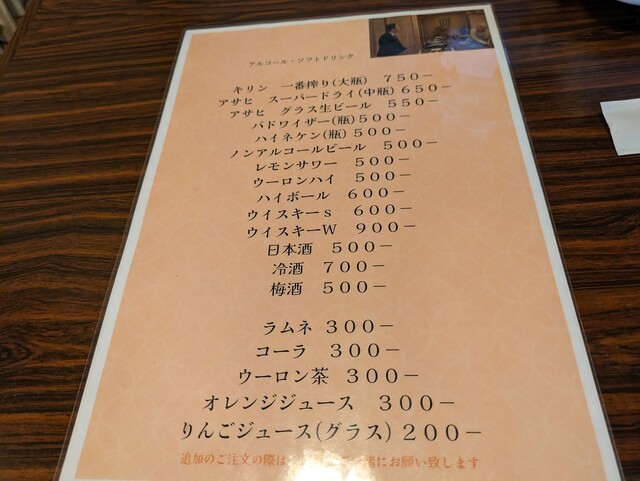 アルコール・ソフトドリンク
キリン 一番搾り(大瓶) 750-
アサヒ スーパードライ(中瓶) 650-
アサヒ グラス生ビール 550-
バドワイザー(瓶)500-
ハイネケン(瓶) 500-
ノンアルコールビール 500-
レモンサワー 500-
ウーロンハイ 500-
ハイボール 600-
ウイスキーs 600-
ウイスキーW 900-
日本酒 500-
冷酒 700-
梅酒 500-
ラムネ 300-
コーラ 300-
ウーロン茶 300-
オレンジジュース 300-
りんごジュース(グラス) 200-
追加のご注文の際は 緒にお願い致します